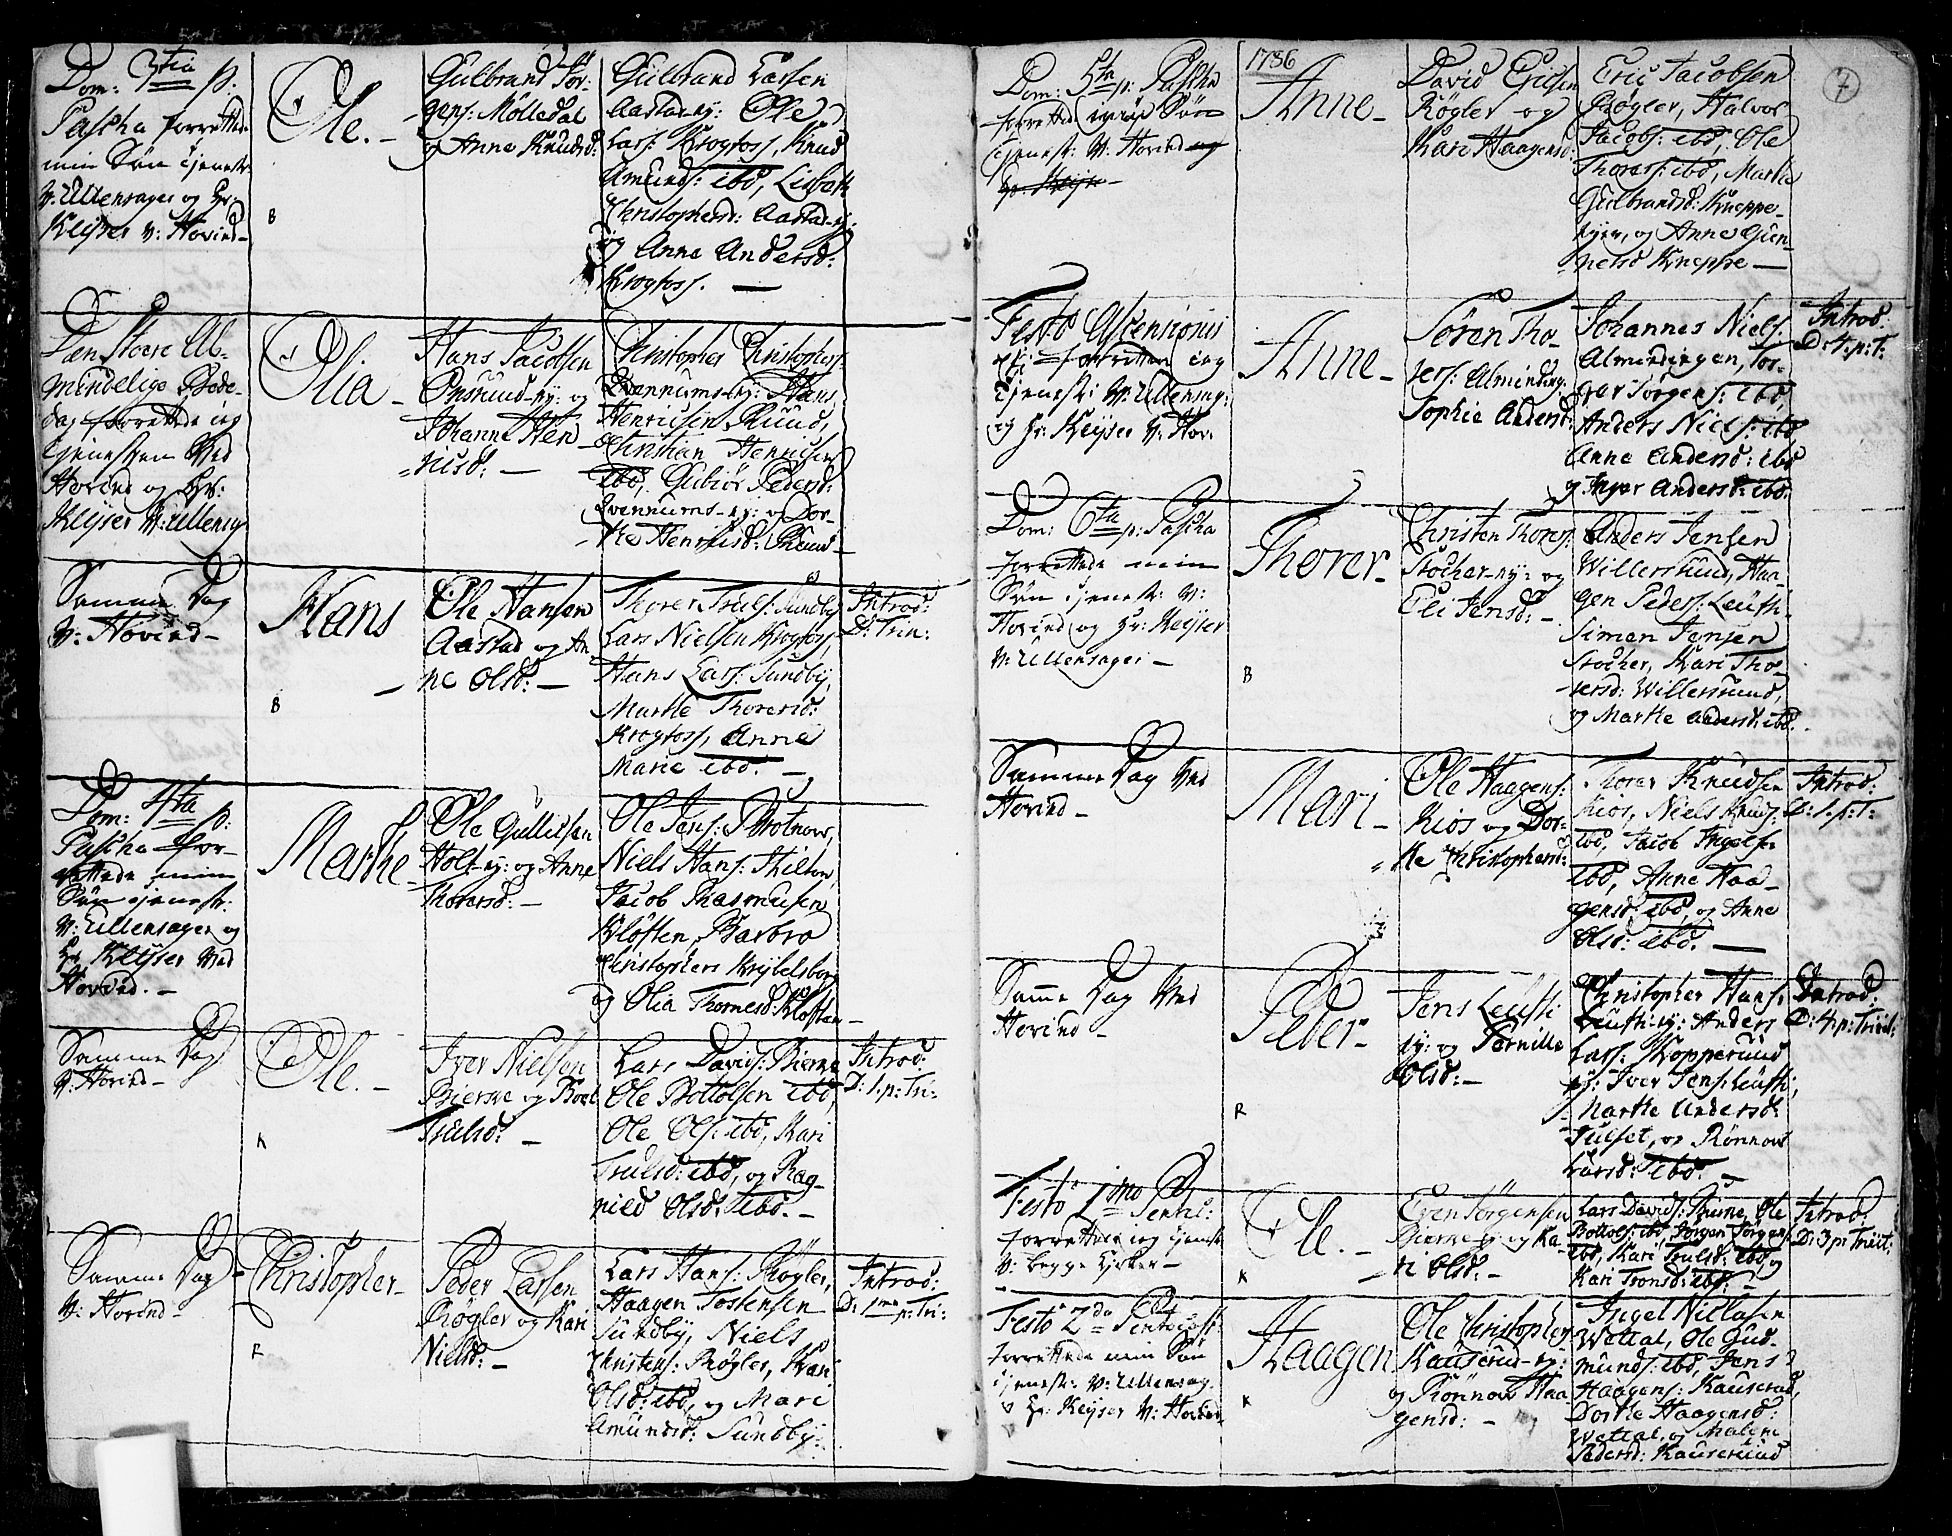 Dom: 3tia p:
Pascha forrettede
min Søn tjenest:
v: Ullensager og Hr.
Keyser v: Hovind –
B
Ole. –
Gulbrand Jør-
gens: Mølledal
og Anne Knudsd:
Gulbrand Larsen
Aastad-ey: Ole
Lars: Krogfoss, Knud
Amunds: ibd, Lisbeth
Christophersd: Aastad-ey:
og Anne Andersd:
Krogfoss. –
Den Store Al-
mindelige Bede-
dag forrettede ieg
tjenesten ved
Hovind og Hr:
Keyser v: Ullensag:
Olia –
Hans Jacobsen
Onsrud-ey: og
Johanne Hen-
ricsd: –
Christopher Christophers:
Henricsen Ruud,
Christian Henricsen
ibd, Gubiør Pedersd:
og Dor-
the Henricsd: Ruud –
Samme Dag
v: Hovind –
B
Hans
Ole Hansen
Aastad og An-
ne Olsd: –
Thorer Truls: Sundby
Lars Nielsen Krogfoss,
Hans Lars: Sundby,
Marthe Thorersd:
Krogfoss, Anne
Marie ibd. –
Introd:
D: Trin:
Dom: 4ta p:
Pascha for-
rettede min
Søn tjenest:
v: Ullensager og
Hr. Keyser ved
Hovind. –
Marthe –
Ole Gullicsen
Holt-ey: og Anne
Thorersd: –
Ole Jens: Brotnov,
Niels Hans: Hilton,
Jacob Rasmusen
Kløften, Barbro
Christophers Krybelsborg
og Olia Thoresd: Kløften –
Samme Dag
v: Hovind –
Ole. –
Iver Nielsen
Bierke og Boel
Trulsd: –
Lars Davids: Bierke
Ole Bottolsen ibd,
Ole Ols: ibd, Kari
Trulsd: ibd, og Rag-
nild Olsd: ibd. –
Introd:
D: 1: p: Tri:
Samme Dag
v: Hovind –
Christopher –
Peder Larsen
Røgler og Kari
Nielsd: –
Lars Hans: Røgler,
Haagen Tostensen
Sundby, Niels
Christens: Røgler, Kari
Olsd: ibd, og Mari
Amundsd: Sundby:
Introd:
D: 1ma p: Tri:
1786
7
Dom: 5ta p: Pascha
forrettede min Søn
tjenest: v: Hovind og
Hr: Keyser –
Anne –
David Ericsen
Røgler og
Kari Haagensd:
Eric Jacobsen
Røgler, Halvor
Jacobs: ibd, Ole
Thorers: ibd, Marthe
Gulbrandsd: Kneppe-
eyer, og Anne Gun-
nersd Kneppe –
Festo Ascensionis
forrettede ieg
tjenest: v: Ullensag:
og Hr: Keyser v: Hov:
Anne –
Søren Tho-
rers: Alminding,
Sophie Andersd:
Johannes Niels:
Almindingen, Tor-
ger Jørgens: ibd,
Anders Niels: ibd
Anne Andersd: ibd
og Inger Andersd: ibd.
Introd:
D: 4: p: T:
Dom: 6ta p: Pascha
forrettede min
Søn tjenest: v:
Hovind og Hr: Keyser
v: Ullensager –
B
Thorer –
Christen Thorers:
Stocker-ey: og
Eli Jensd: –
Anders Jensen
Willersrud, Haa-
gen Peders: Leuthi
Simen Jensen
Stocker, Kari Tho-
rersd: Willersrud,
og Marthe Andersd: ibd.
Samme Dag ved
Hovind –
Mari –
Ole Haagens:
Kios og Dor-
the Christophersd:
Thorer Knudsen
Kios, Niels Knuds:
ibd, Jacob Ingels:
ibd, Anne Haa-
gensd: ibd, og Anne
Olsd: ibd. –
Introd:
D: 1: p: T:
Samme Dag ved
Hovind –
Peder –
Jens Leuthi
ey: og Pernille
Olsd: –
Christopher Hans:
Leuthi-ey: Anders
Lars: Kopperud
Iver Jens: Leuthi,
Marthe Andersd:
Julset, og Rønnov
Larsd: ibd. –
Introd:
D: 4: p: Trinit:
Festo 1mo Pentec:
forrettede ieg tjenest:
v: begge Kirker –
Ole. –
Even Jørgensen
Bierke-ey og Ka-
ri Olsd: –
Lars Davids: Bierke, Ole
Bottols: ibd, Jørgen Jørgens:
ibd, Kari Trulsd: ibd og
Kari Tronsd: ibd. –
Introd:
D: 3 p: Trinit:
Festo 2da Pentecost:
forrettede min Søn
tjenest: v: Ullensag:
og Hr: Keyser v: Hovind
Haagen
Ole Christopher:
Kauserud-ey:
og Rønnov Haa-
gensd: –
Ingel Niclasen
Wettal, Ole Gud-
munds: ibd, Jens
Haagens: Kauserud,
Dorthe Haagensd:
Wettal, og Malene
Pedersd: Kauserud